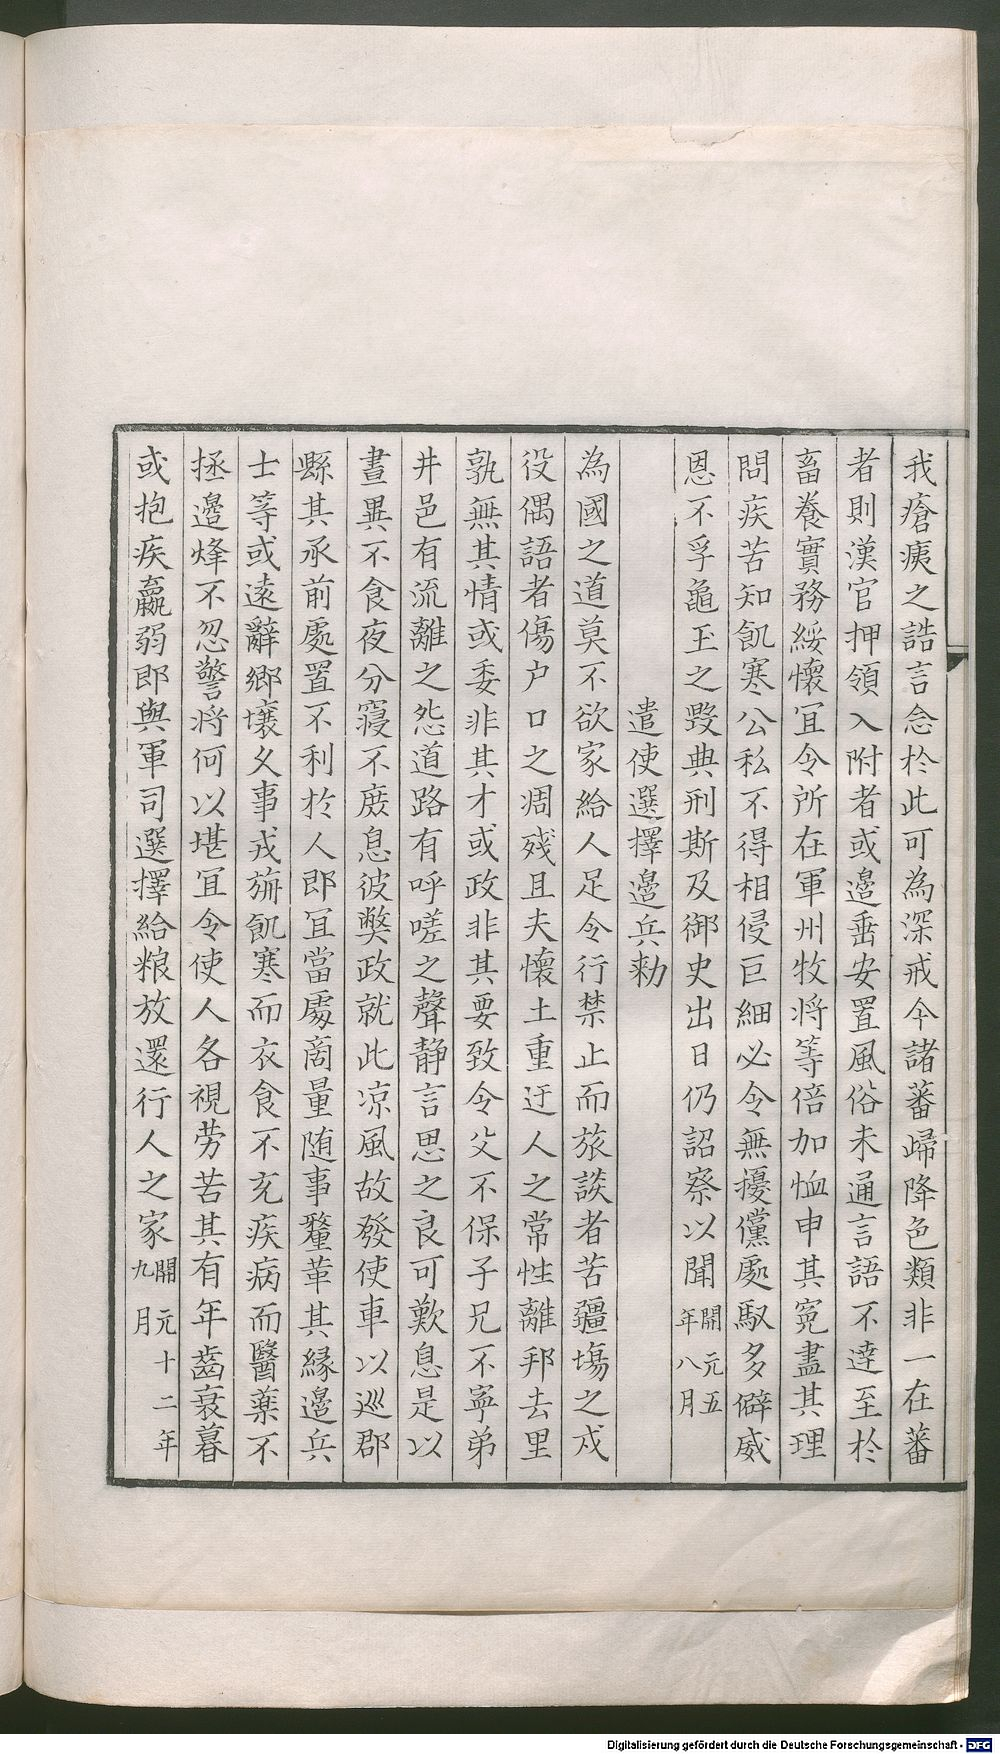 我瘡痍之誥言念於此可為深戒今諸蕃歸降色類非一在蕃
者則漢官押領入附者或邉垂安置風俗未通言語不達至於
畜養實務綏懷冝令所在軍州牧將等倍加恤申其寃盡其理
問疾苦知飢寒公私不得相侵巨細必令無擾儻處馭多僻威
恩不孚龜玉之毀典刑斯及御史出日仍詔察以聞開元五年八月
遣使選擇邉兵勑
為國之道莫不欲家給人足令行禁止而旅談者苦疆場之戍
役偶語者傷户口之凋殘且夫懷土重迂人之常性離邦去里
孰無其情或委非其才或政非其要致令父不保子兄不寧弟
井邑有流離之怨道路有呼嗟之聲静言思之良可歎息是以
晝興不食夜分寢不庻息彼獘政就此凉風故發使車以巡郡
縣其承前處置不利於人即冝當處商量随事釐革其緣邉兵
士等或逺辭鄉壤久事戎旃飢寒而衣食不充疾病而醫藥不
拯邉烽不忽警將何以堪冝令使人各視劳苦其有年齒衰暮
或抱疾羸弱即與軍司選擇給粮放還行人之家開元十二年九月
Digitalisierung gefördert durch die Deutsche Forschungsgemeinschaft - DFG